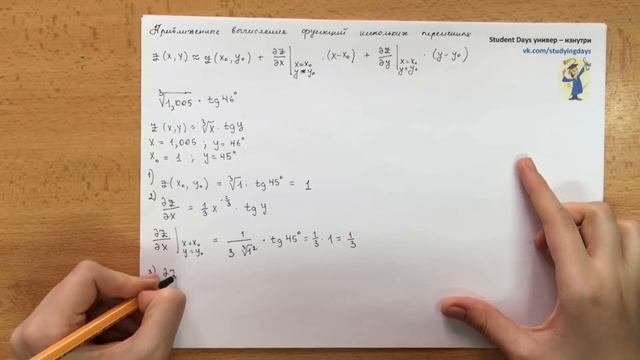 Приближенные вычисления функций нескольких переменных
Student Days универ – изнутри
vk.com/studyingdays
z(x,y) ≈ z(x₀,y₀) + ∂z/∂x |x=x₀ y=y₀ · (x-x₀) + ∂z/∂y |x=x₀ y=y₀ · (y-y₀)
∛1,005 · tg 46°
z(x,y) = ∛x · tg y
x = 1,005 ; y = 46°
x₀ = 1 ; y = 45°
1) z(x₀, y₀) = ∛1 · tg 45° = 1
2) ∂z/∂x = 1/3 x^-2/3 · tg y
∂z/∂x |x=x₀ y=y₀ = 1/(3 ∛1²) · tg 45° = 1/3 · 1 = 1/3
3) ∂z